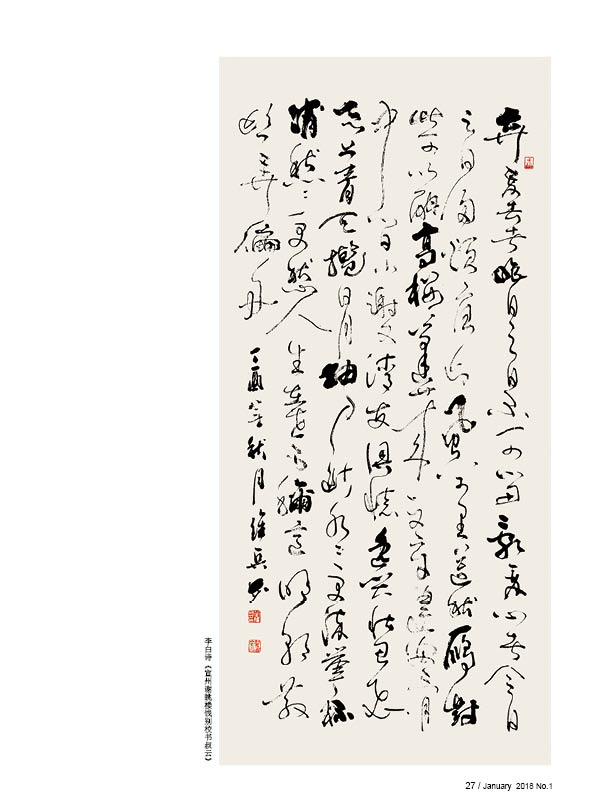 弃我去者昨日之日不可留亂我心者今日
之日多煩憂長風萬里送秋雁對
此可以酣高樓蓬萊文章建安骨
中間小謝又清發俱懷逸興壯思飛
欲上青天攬日月抽刀斷水水更流舉杯
消愁愁更愁人生在世不稱意明朝散
髮弄扁舟
丁酉年秋月維兵書
李白诗《宣州谢朓楼饯别校书叔云》
27 / January 2018 No.1